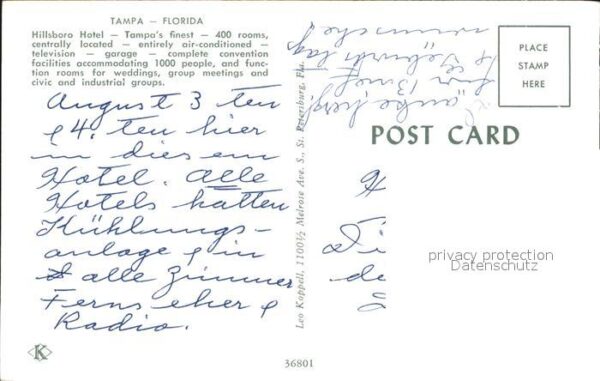 TAMPA — FLORIDA
Hillsboro Hotel — Tampa's finest — 400 rooms,
centrally located — entirely air-conditioned —
television — garage — complete convention
facilities accommodating 1000 people, and func-
tion rooms for weddings, group meetings and
civic and industrial groups.
August 3 ten
& 4. ten hier
in diesem
Hotel. Alle
Hotels hatten
Kühlungs-
anlage & in
alle Zimmer
Fernseher &
Radio.
Leo Koppell, 1100½ Melrose Ave. S., St. Petersburg, Fla.
36801
K
für
Geburtstag
PLACE
STAMP
HERE
POST CARD
H
Di
de
privacy protection
Datenschutz